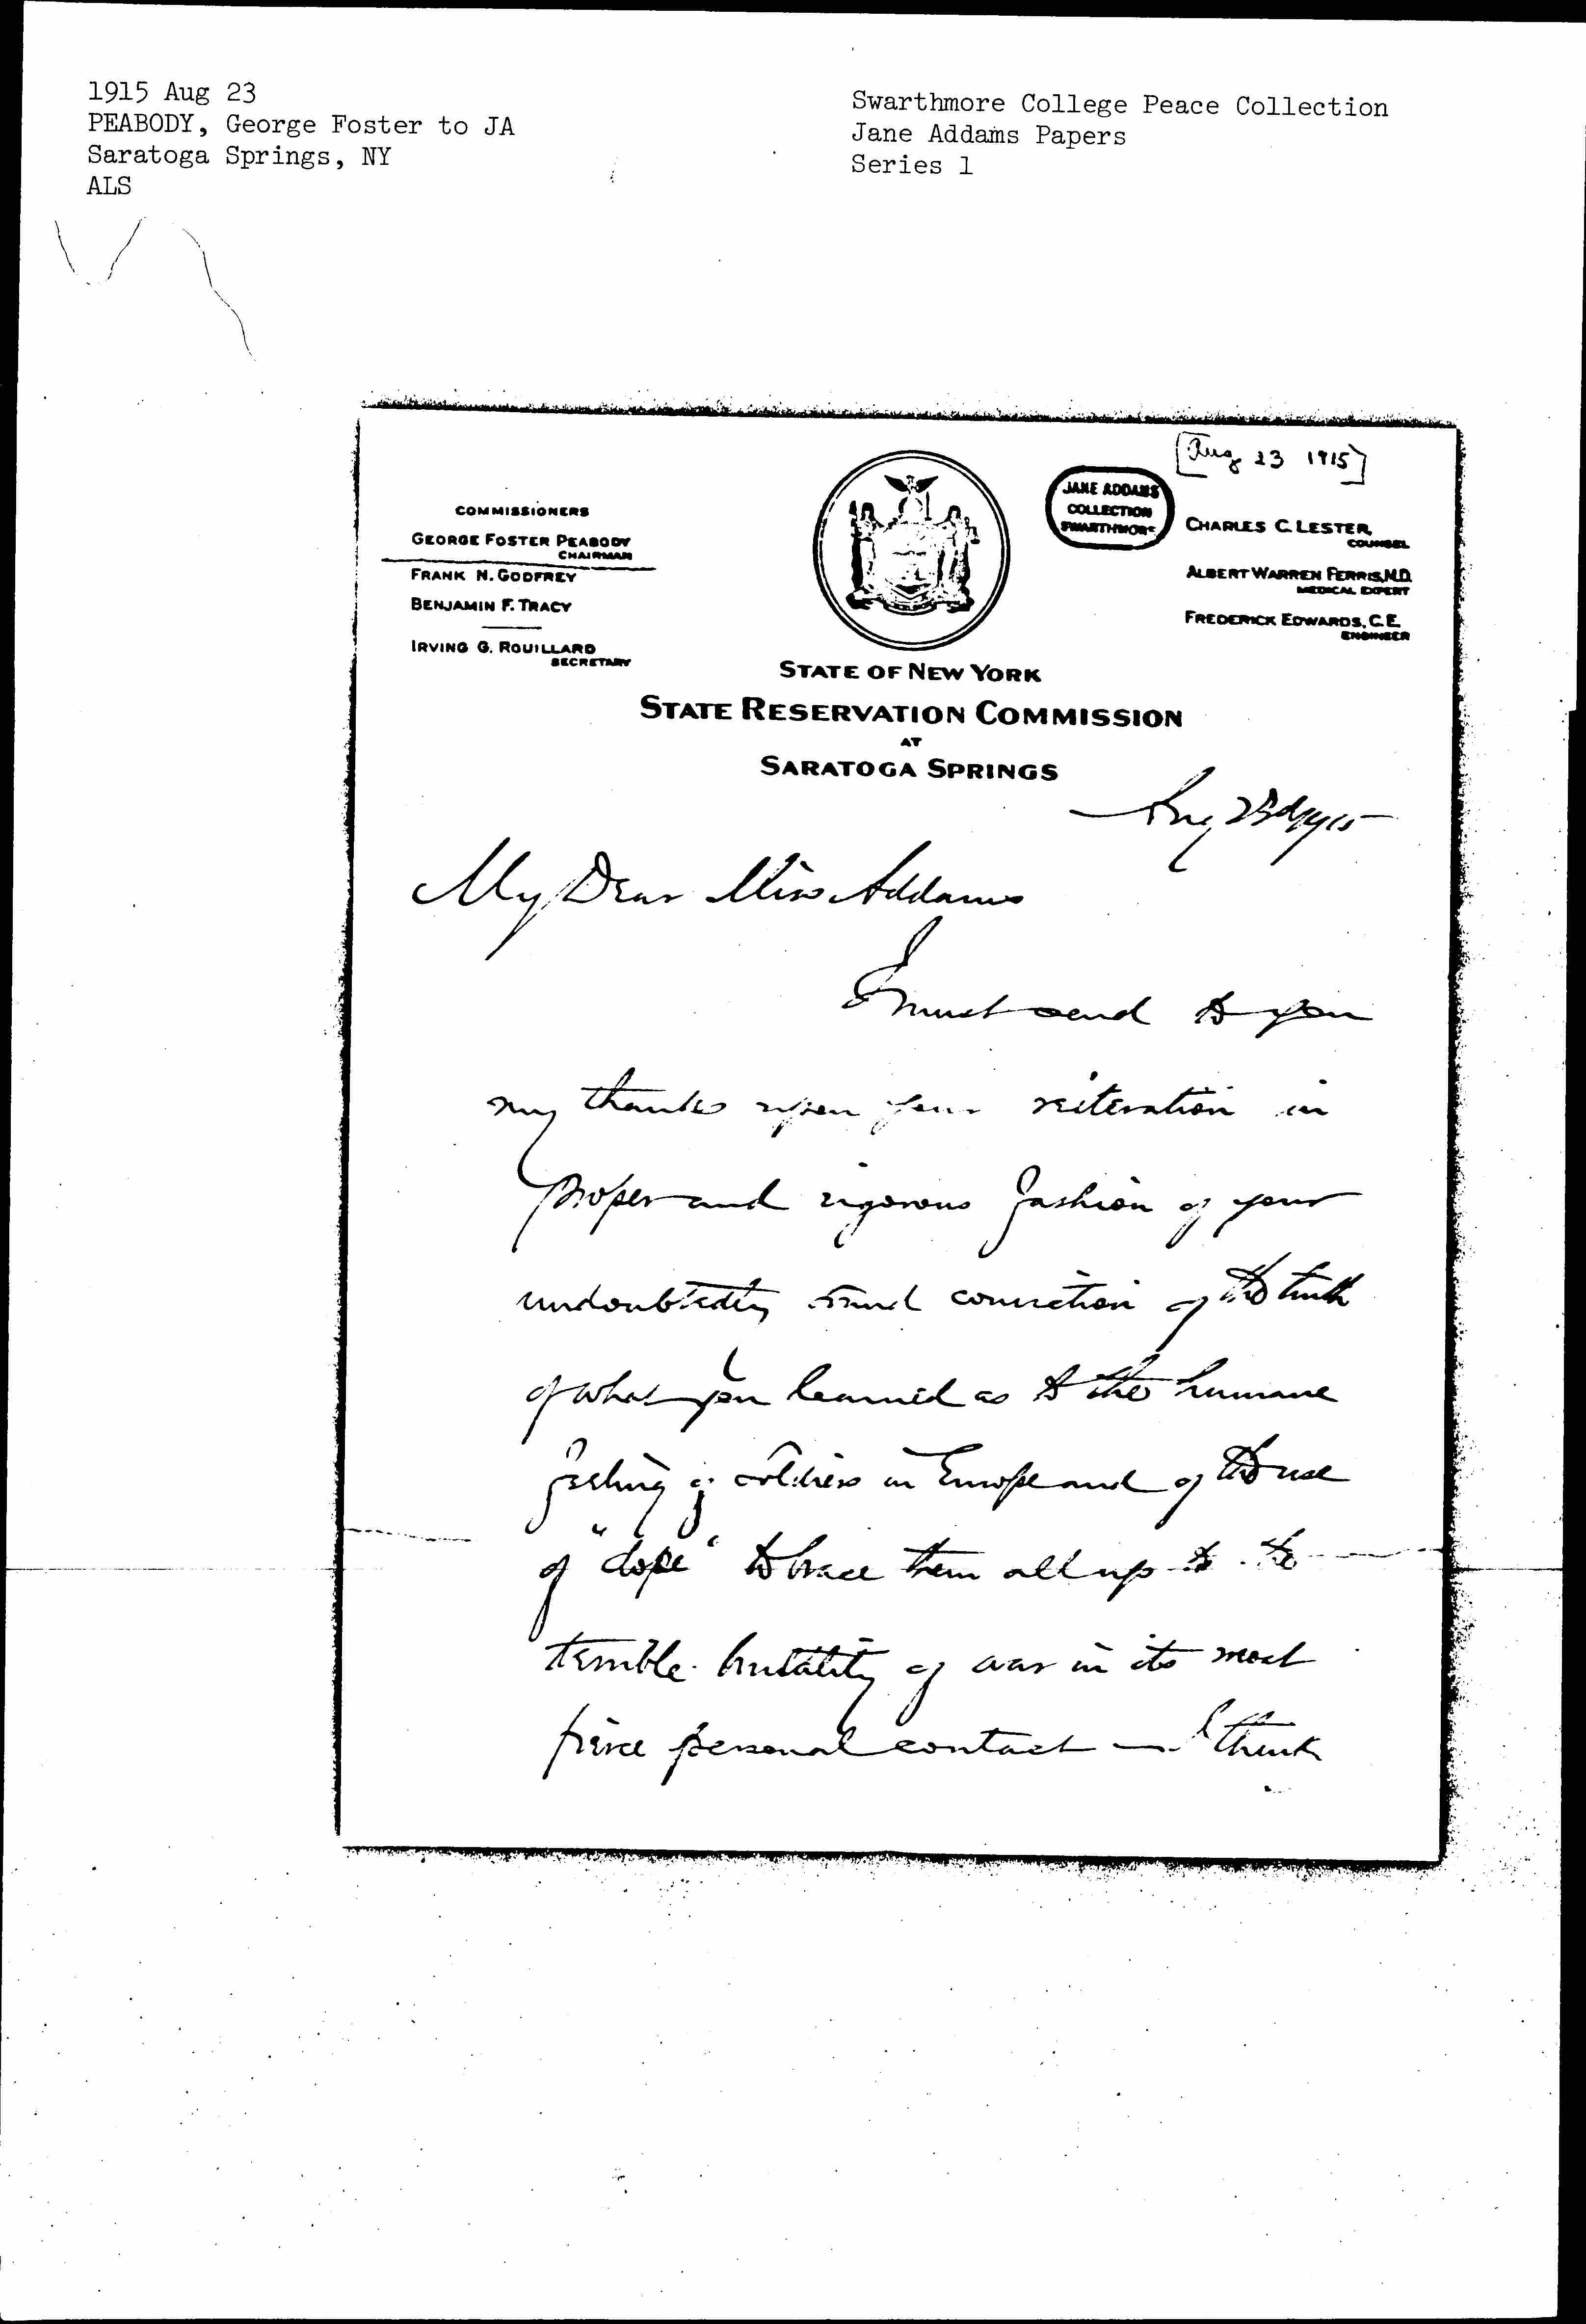 1915 Aug 23
PEABODY, George Foster to JA
Saratoga Springs, NY
ALS
Swarthmore College Peace Collection
Jane Addams Papers
Series 1
[Aug 23 1915]
JANE ADDAMS
COLLECTION
SWARTHMORE
COMMISSIONERS
GEORGE FOSTER PEABODY
CHAIRMAN
FRANK N. GODFREY
BENJAMIN F. TRACY
IRVING G. ROUILLARD
SECRETARY
CHARLES C. LESTER,
COUNSEL
ALBERT WARREN FERRIS, M.D.
MEDICAL EXPERT
FREDERICK EDWARDS, C.E.
ENGINEER
STATE OF NEW YORK
STATE RESERVATION COMMISSION
AT
SARATOGA SPRINGS
Aug 23d 1915
My Dear Miss Addams
I must send to you
my thanks upon your reiteration in
proper and vigorous fashion of your
undoubtedly sound conviction of the truth
of what you learned as to the humane
feeling of soldiers in Europe and of the use
of "dope" to brace them all up to the
terrible brutality of war in its most
fierce personal contact — I think